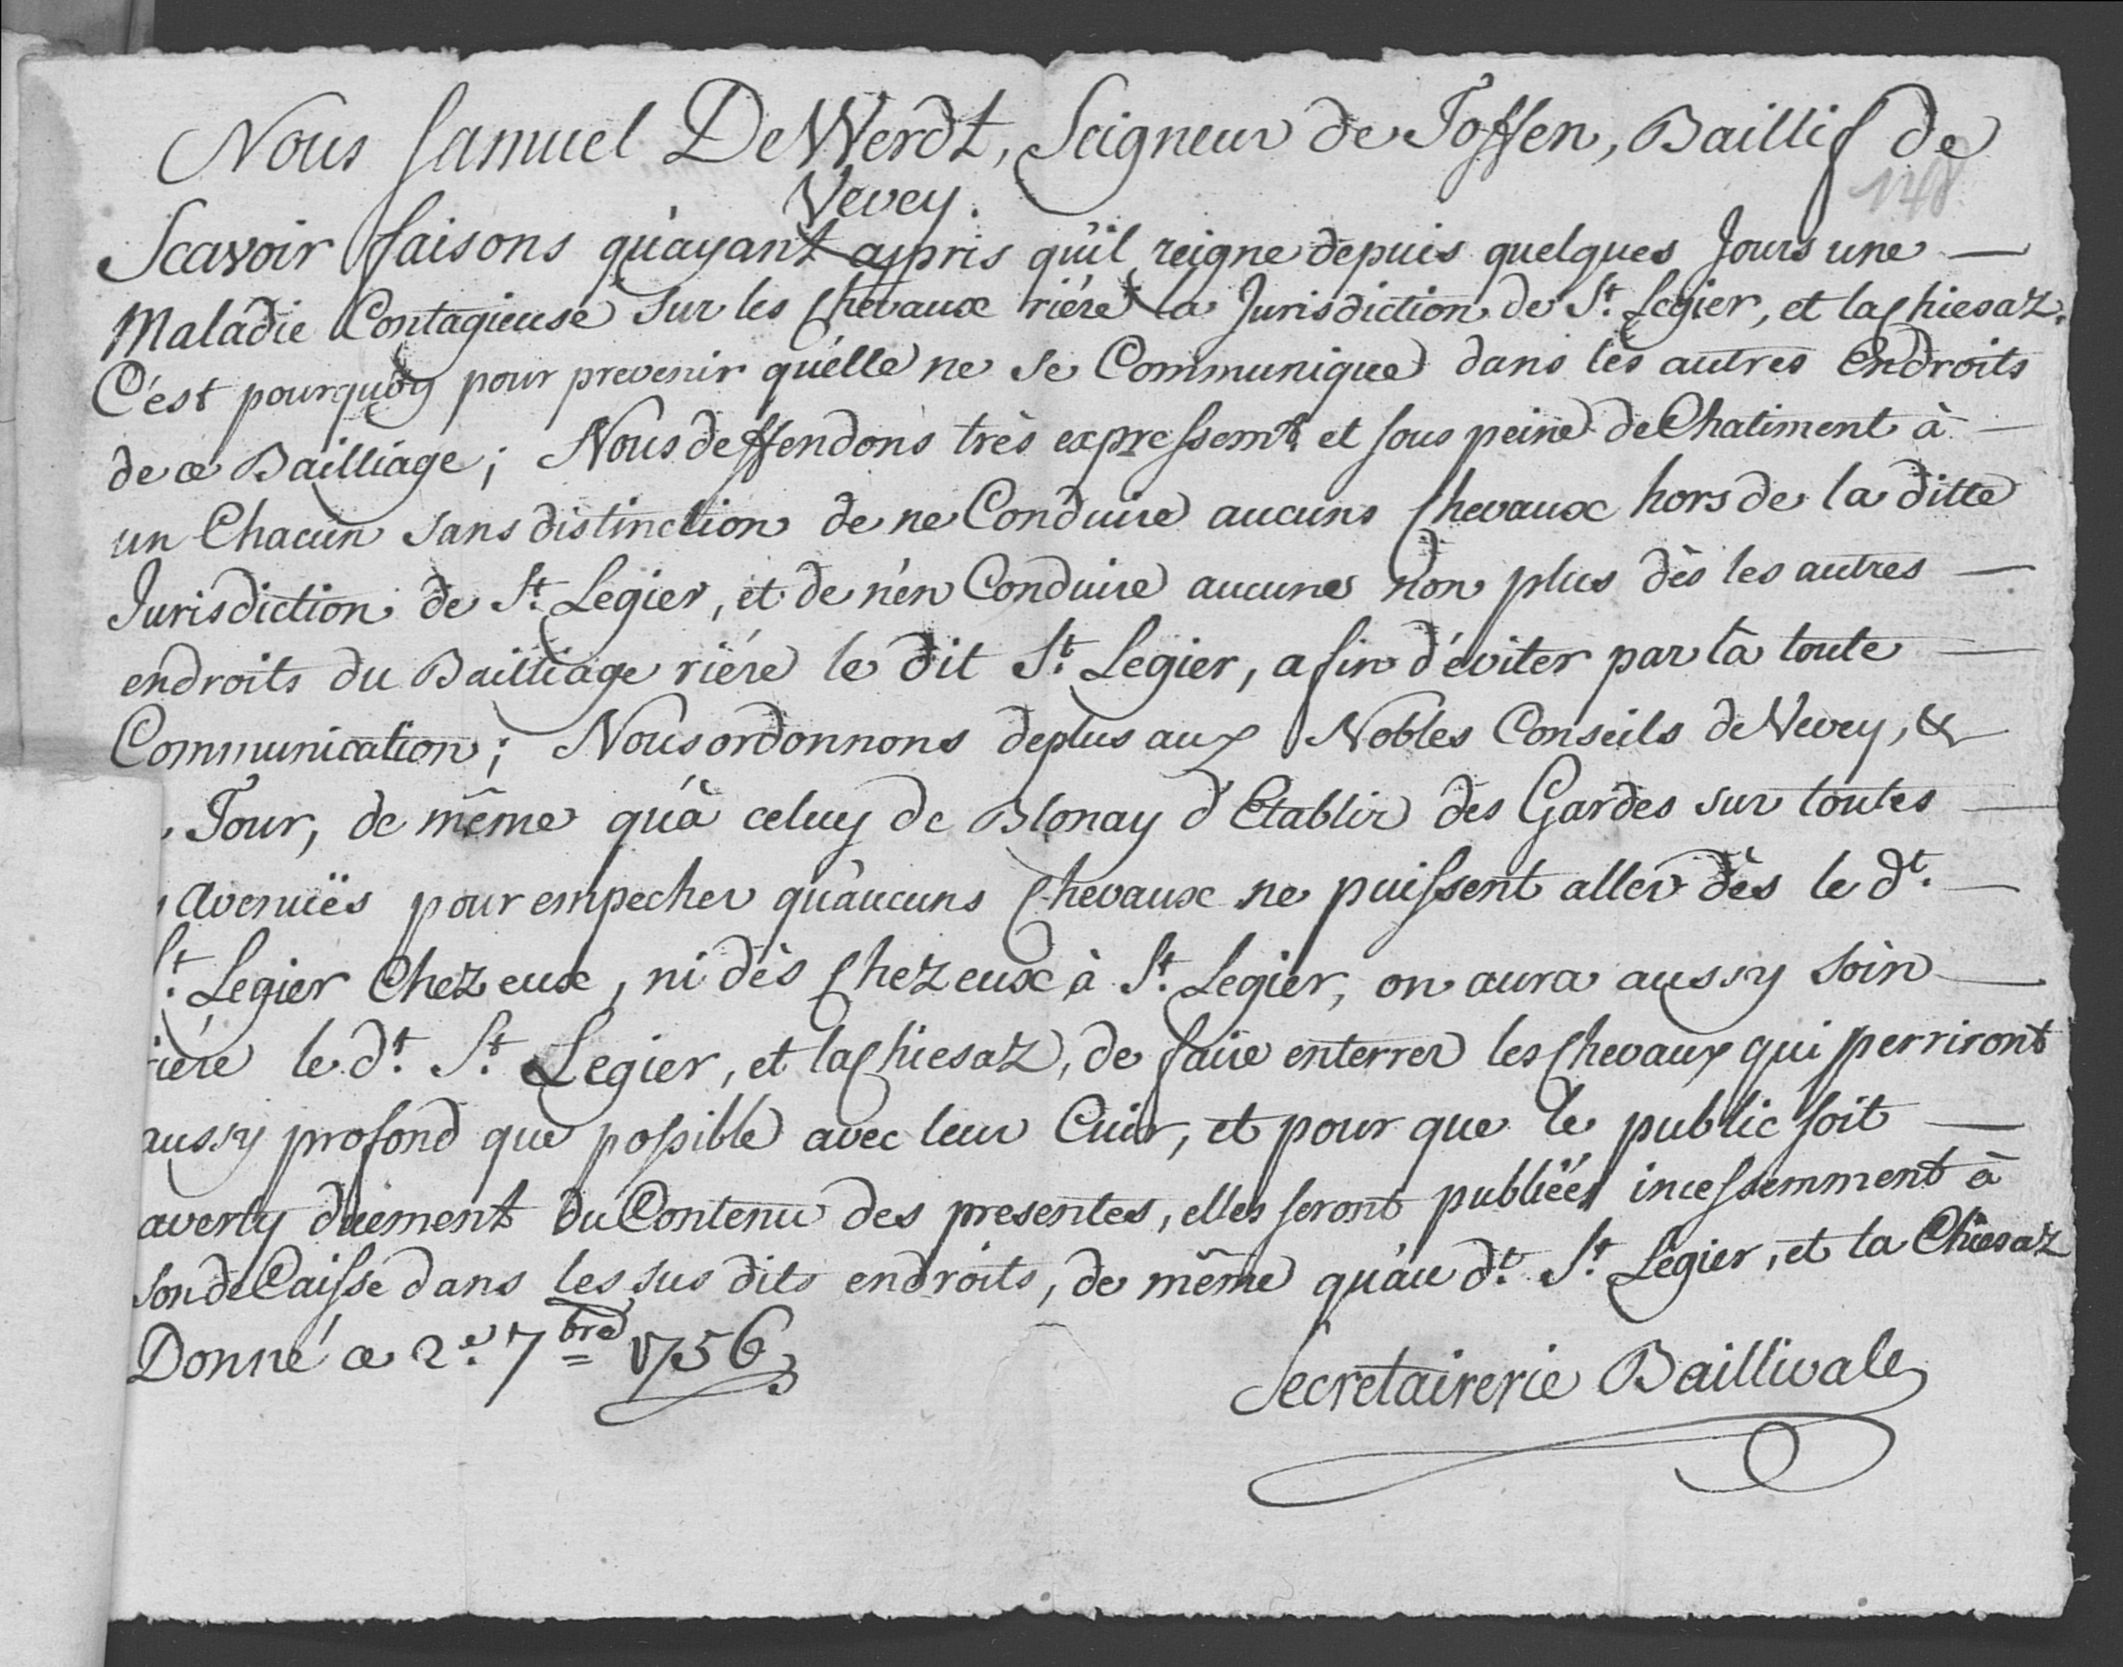 Nous Samuel De Werdt, Seigneur de Toffen, Baillif de
Vevey.
148
Scavoir faisons qu'ayant appris qu'il reigne depuis quelques Jours une —
Maladie Contagieuse sur les Chevaux riére la Jurisdiction de St. Legier, et la Chiesaz.
C'est pourquoy pour prevenir qu'elle ne se Communique dans les autres Endroits
de ce Bailliage; Nous deffendons très expressemt. et sous peine de Chatiment à —
un Chacun sans distinction de ne Conduire aucuns Chevaux hors de la ditte
Jurisdiction de St. Legier, et de n'en Conduire aucuns non plus dès les autres —
endroits du Bailliage riére le dit St. Legier, afin d'éviter par là toute —
Communication; Nous ordonnons deplus aux Nobles Conseils de Vevey, &
Tour, de même qu'à celuy de Blonay d'Etablir des Gardes sur toutes —
Avenuës pour empecher qu'aucuns Chevaux ne puissent aller dès le dt. —
St. Legier Chez eux, ni dès Chez eux à St. Legier, on aura aussy soin —
riére le dt. St. Legier, et la Chiesaz, de faire enterrer les Chevaux qui perriront
aussy profond que possible avec leur Cuir, et pour que le public soit —
averty duement du Contenu des presentes, elles seront publiées incessemment à
son de Caisse dans les sus dits endroits, de même qu'au dt. St. Legier, et la Chiesaz
Donné ce 2e. 7bre 1756
Secretairerie Baillivale